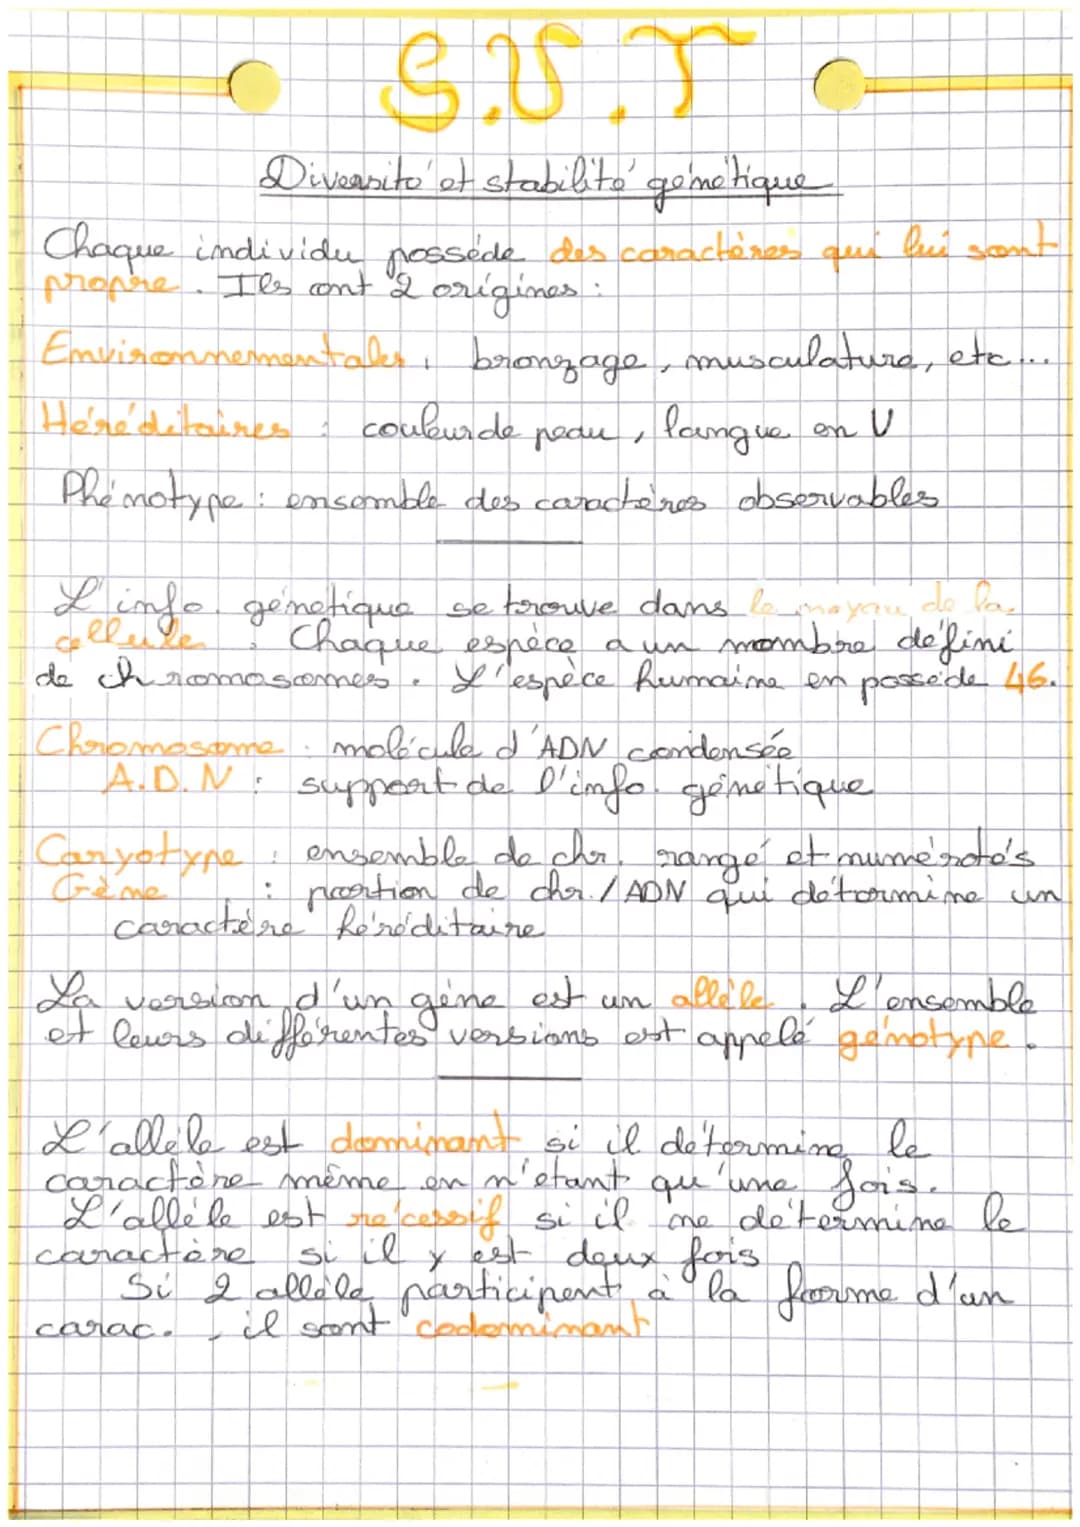 S.V.T
Diversité et stabilité génétique
Chaque individu posséde des caractères qui lui sont
propre. Ils ont 2 origines :
Environnementales : bronzage, musculature, etc...
Héréditaires : couleur de peau, langue en U
Phénotype : ensemble des caractères observables
L'info. génétique se trouve dans le noyau de la
cellule. Chaque espèce a un nombre défini
de chromosomes. L'espèce humaine en possède 46.
Chromosome : molécule d'ADN condensée
A.D.N : support de l'info. génétique
Caryotype : ensemble de chr. rangé et numérotés
Gène : portion de chr. / ADN qui détermine un
caractère héréditaire
La version d'un gène est un allèle. L'ensemble
et leurs différentes versions est appelé génotype.
L'allèle est dominant si il détermine le
caractère même en n'étant qu'une fois.
L'allèle est récessif si il ne détermine le
caractère si il y est deux fois
Si 2 allèle participent à la forme d'un
carac., il sont codominant